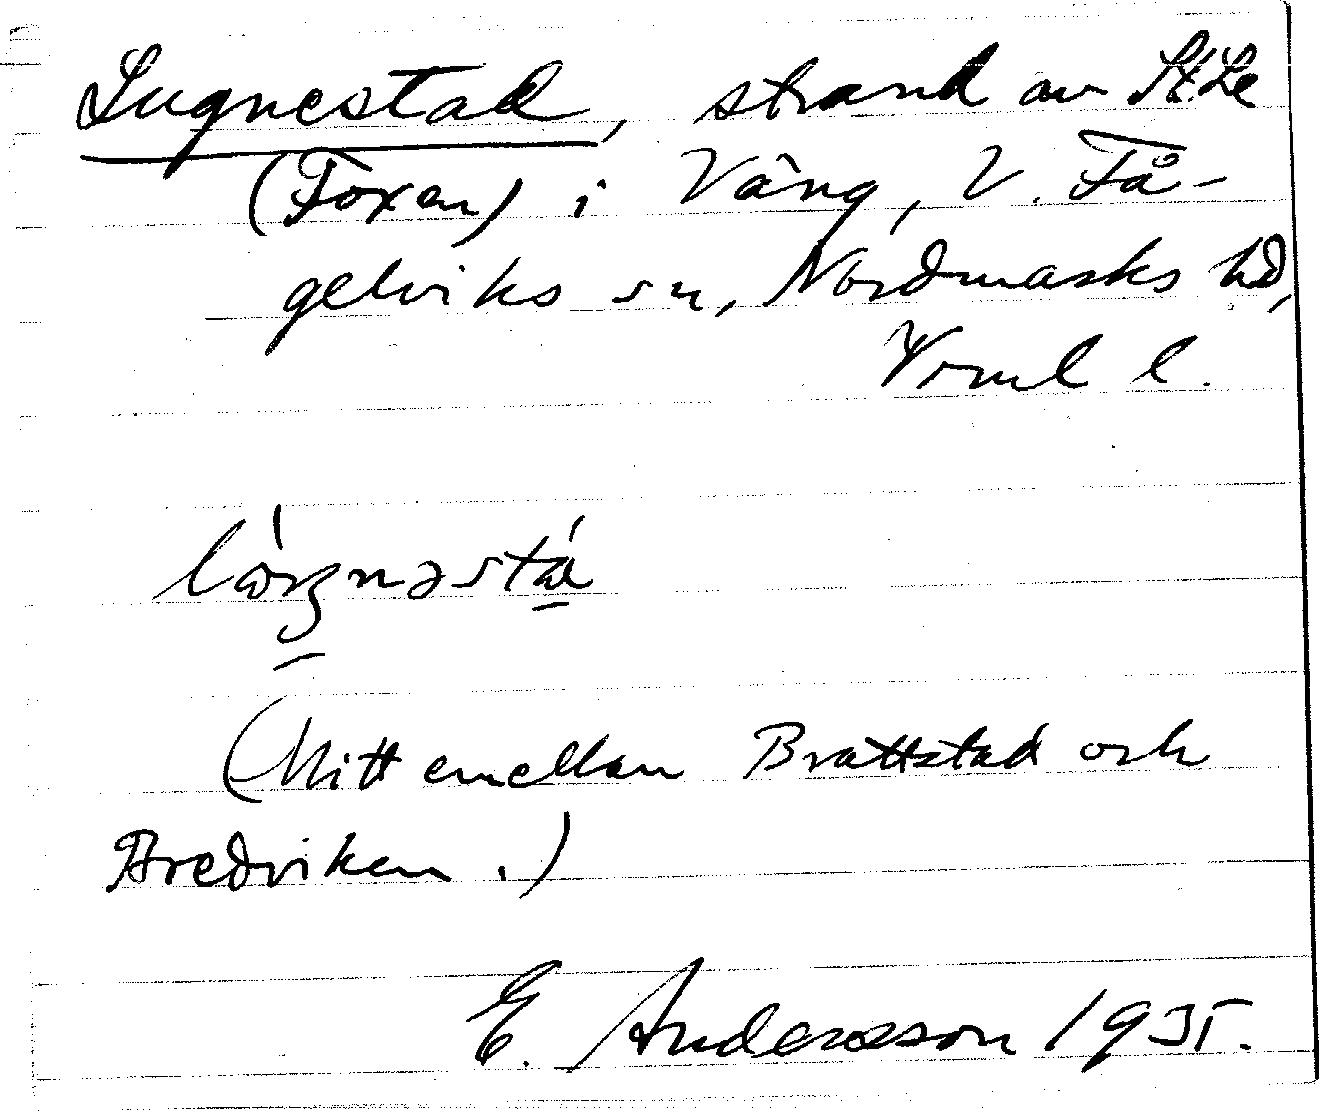 Lugnestad, strand av St. Le
(Foxen) i Väng, V. Få-
gelviks sn, Nordmarks hd,
Vrml l.
(Mitt emellan Brattstad och
Bredviken.)
E. Andersson 1935.